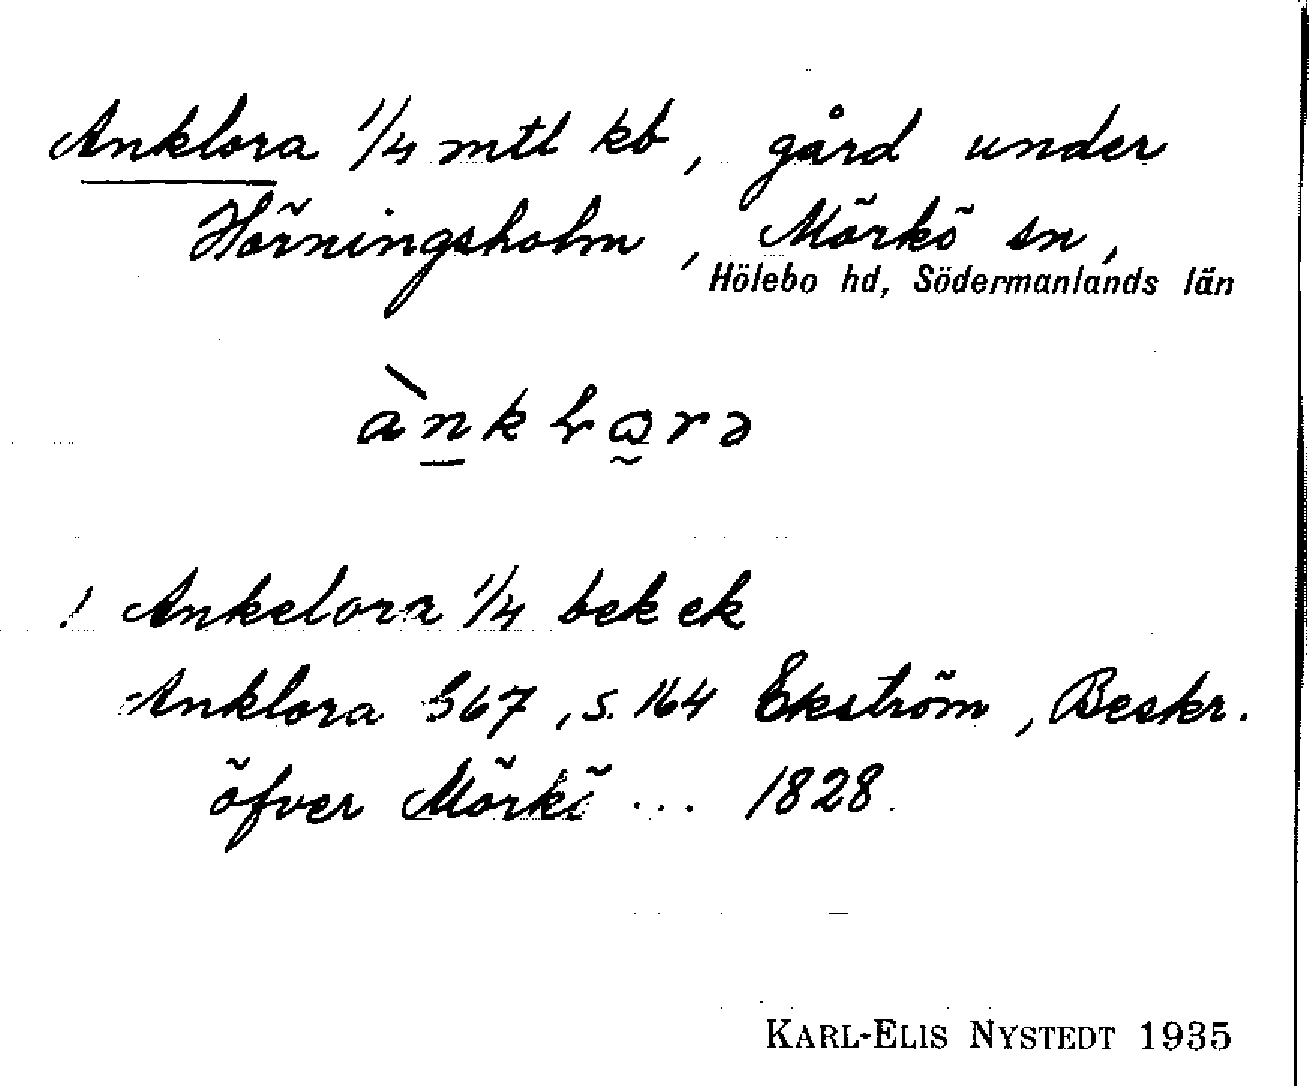 Anklora 1/4 mtl kb, gård under
Hörningsholm, Mörkö sn,
Hölebo hd, Södermanlands län
! Ankelora 1/4 bek ek
Anklora 367, s. 164 Ekström, Beskr.
öfver Mörkö ... 1828.
KARL-ELIS NYSTEDT 1935